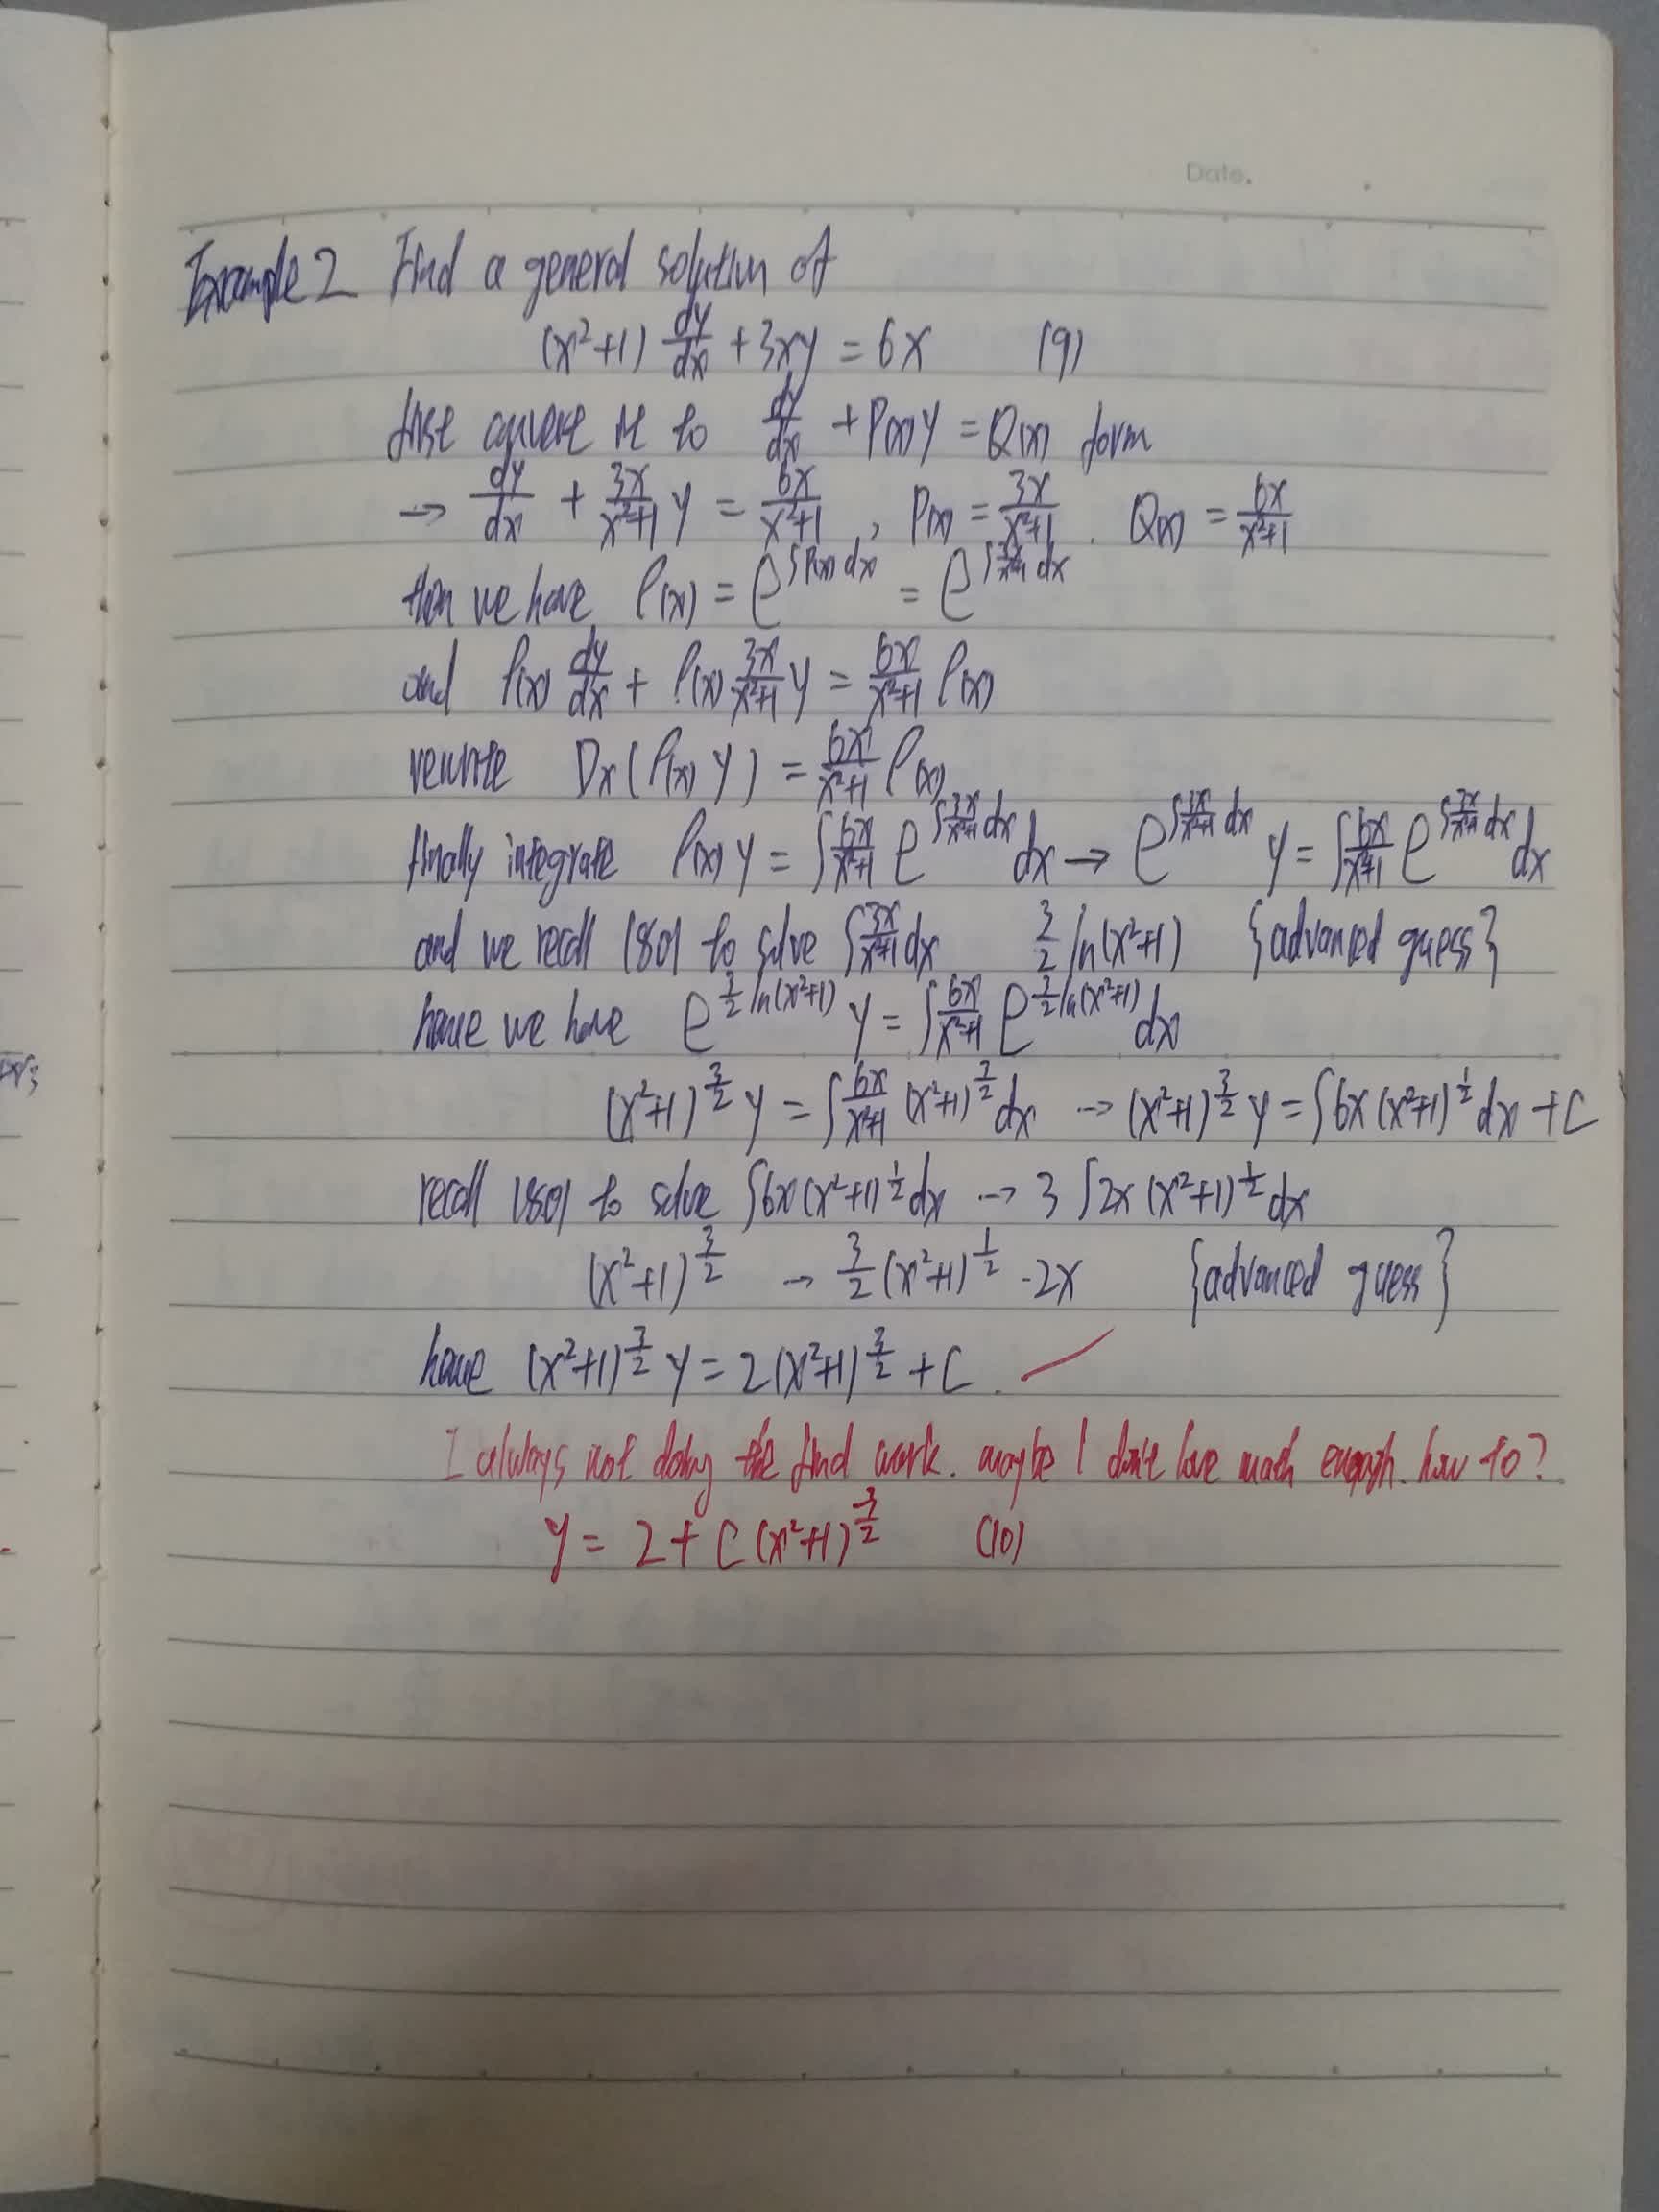 Date.
Example 2 Find a general solution of
(x²+1) dy/dx + 3xy = 6x (9)
first convert it to dy/dx + P(x)y = Q(x) form
→ dy/dx + 3x/(x²+1) y = 6x/(x²+1), P(x) = 3x/(x²+1). Q(x) = 6x/(x²+1)
then we have ρ(x) = e^(∫P(x)dx) = e^(∫3x/(x²+1) dx)
and ρ(x) dy/dx + ρ(x) 3x/(x²+1) y = 6x/(x²+1) ρ(x)
rewrite Dx(ρ(x) y) = 6x/(x²+1) ρ(x)
finally integrate ρ(x) y = ∫ 6x/(x²+1) e^(∫3x/(x²+1) dx) dx → e^(∫3x/(x²+1) dx) y = ∫ 6x/(x²+1) e^(∫3x/(x²+1) dx) dx
and we recall 1801 to solve ∫ 3x/(x²+1) dx 3/2 ln(x²+1) {advanced guess}
have we have e^(3/2 ln(x²+1)) y = ∫ 6x/(x²+1) e^(3/2 ln(x²+1)) dx
(x²+1)^(3/2) y = ∫ 6x/(x²+1) (x²+1)^(3/2) dx → (x²+1)^(3/2) y = ∫ 6x (x²+1)^(1/2) dx + C
recall 1801 to solve ∫ 6x (x²+1)^(1/2) dx → 3 ∫ 2x (x²+1)^(1/2) dx
(x²+1)^(3/2) → 3/2 (x²+1)^(1/2) · 2x {advanced guess}
have (x²+1)^(3/2) y = 2(x²+1)^(3/2) + C.
I always not doing the find work. maybe I don't love math enough. how to?
y = 2 + C (x²+1)^(-3/2) (10)